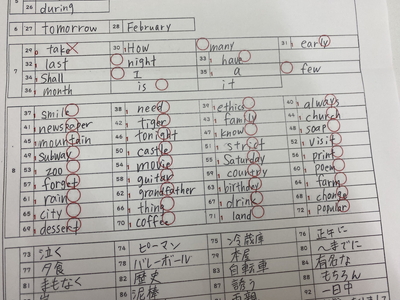 26 during
8 27 tomorrow 28 February
29 take 30 How many 31 early
32 last night 33 have
7 34 Shall I 35 a few
36 month is it
37 smile 38 need 39 ethics 40 always
41 newspaper 42 tiger 43 family 44 church
45 mountain 46 tonight 47 know 48 soap
49 subway 50 castle 51 strict 52 visit
8 53 zoo 54 movie 55 Saturday 56 print
57 forget 58 guitar 59 country 60 poem
61 rain 62 grandfather 63 birthday 64 farm
65 city 66 thing 67 drink 68 change
69 dessert 70 coffee 71 land 72 popular
73 泣く 74 ピーマン 75 冷蔵庫 76 正午に
77 夕食 78 バレーボール 79 本屋 80 〜までに
81 まもなく 82 歴史 83 自転車 84 有名な
86 泥棒 87 誘う 88 もちろん
92 一日中